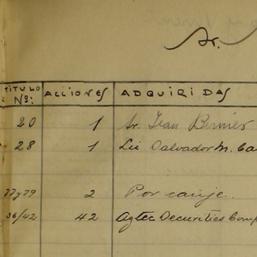 Sr.
TITULO Nº: ACCIONES ADQUIRIDAS
20 1 Sr. Jean Bernier
28 1 Lic Salvador M. Ca
77 y 79 2 Por canje.
36/42 42 Aztec Securities Comp